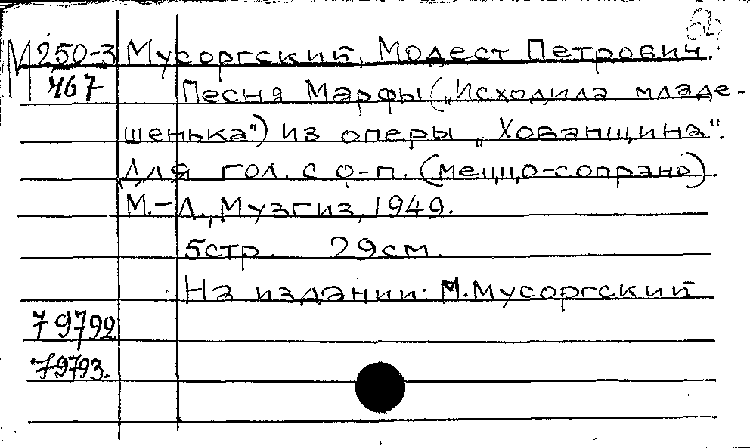 М 250-3 Мусоргский, Модест Петрович.
467 Песня Марфы („Исходила младе-
шенька") из оперы „Хованщина".
Для гол. с ф-п. (меццо-сопрано).
М.-Л., Музгиз, 1949.
5стр. 29см.
На издании: М.Мусоргский
79792
79793.